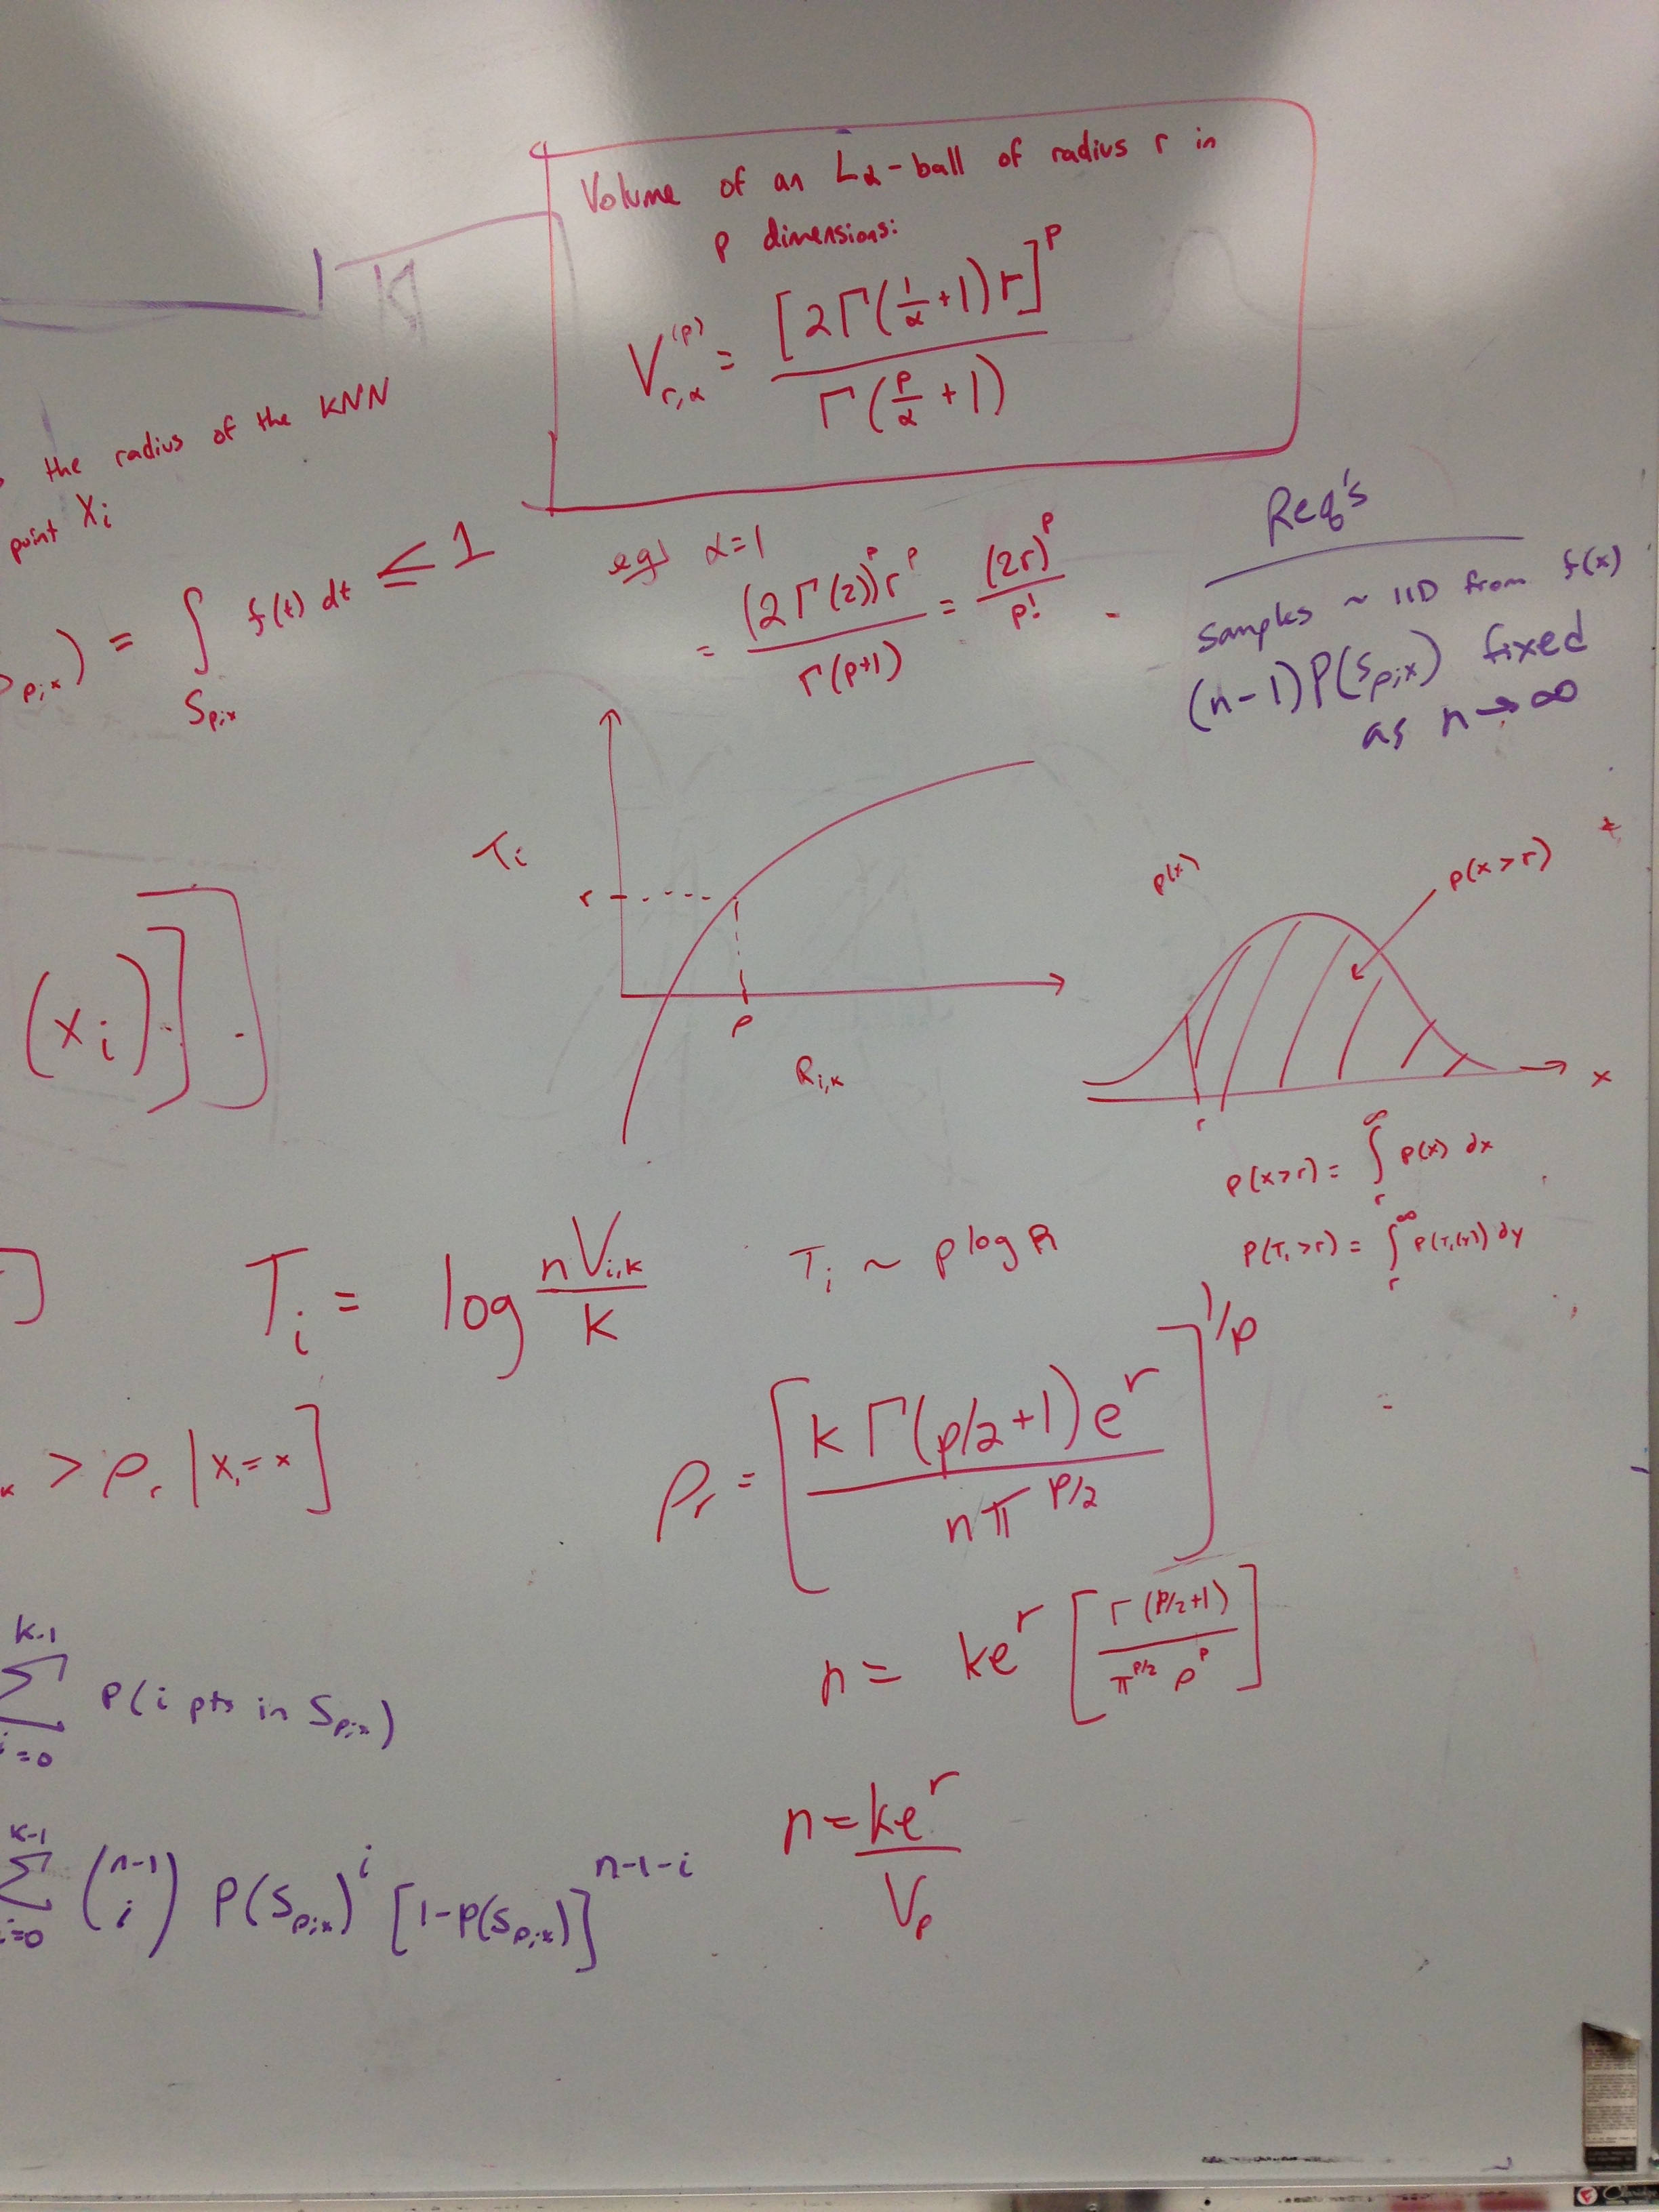 Volume of an Lα-ball of radius r in
p dimensions:
V_{r,α}^{(p)} = [2Γ(1/α + 1) r]^p / Γ(p/α + 1)
the radius of the KNN
point X_i
) = ∫_{S_{ρ;x}} f(t) dt ≤ 1
eg) α=1
= (2Γ(2))^p r^p / Γ(p+1) = (2r)^p / p!
Req's
Samples ~ IID from f(x)
(n-1)P(S_{ρ;x}) fixed
as n→∞
T_i
r
ρ
R_{i,k}
p(x)
p(x>r)
x
r
(x_i)]].
p(x>r) = ∫_r^∞ p(x) dx
p(T_i>r) = ∫_r^∞ p(T_i(y)) dy
T_i = log nV_{i,k} / k
T_i ~ p log R
ρ_r = [k Γ(p/2+1) e^r / n π^{p/2}]^{1/p}
> ρ_r | X_1=x]
n = ke^r [Γ(p/2+1) / π^{p/2} ρ^p]
Σ_{i=0}^{k-1} P(i pts in S_{ρ;x})
n = ke^r / V_ρ
Σ_{i=0}^{k-1} (n-1 i) P(S_{ρ;x})^i [1-P(S_{ρ;x})]^{n-1-i}